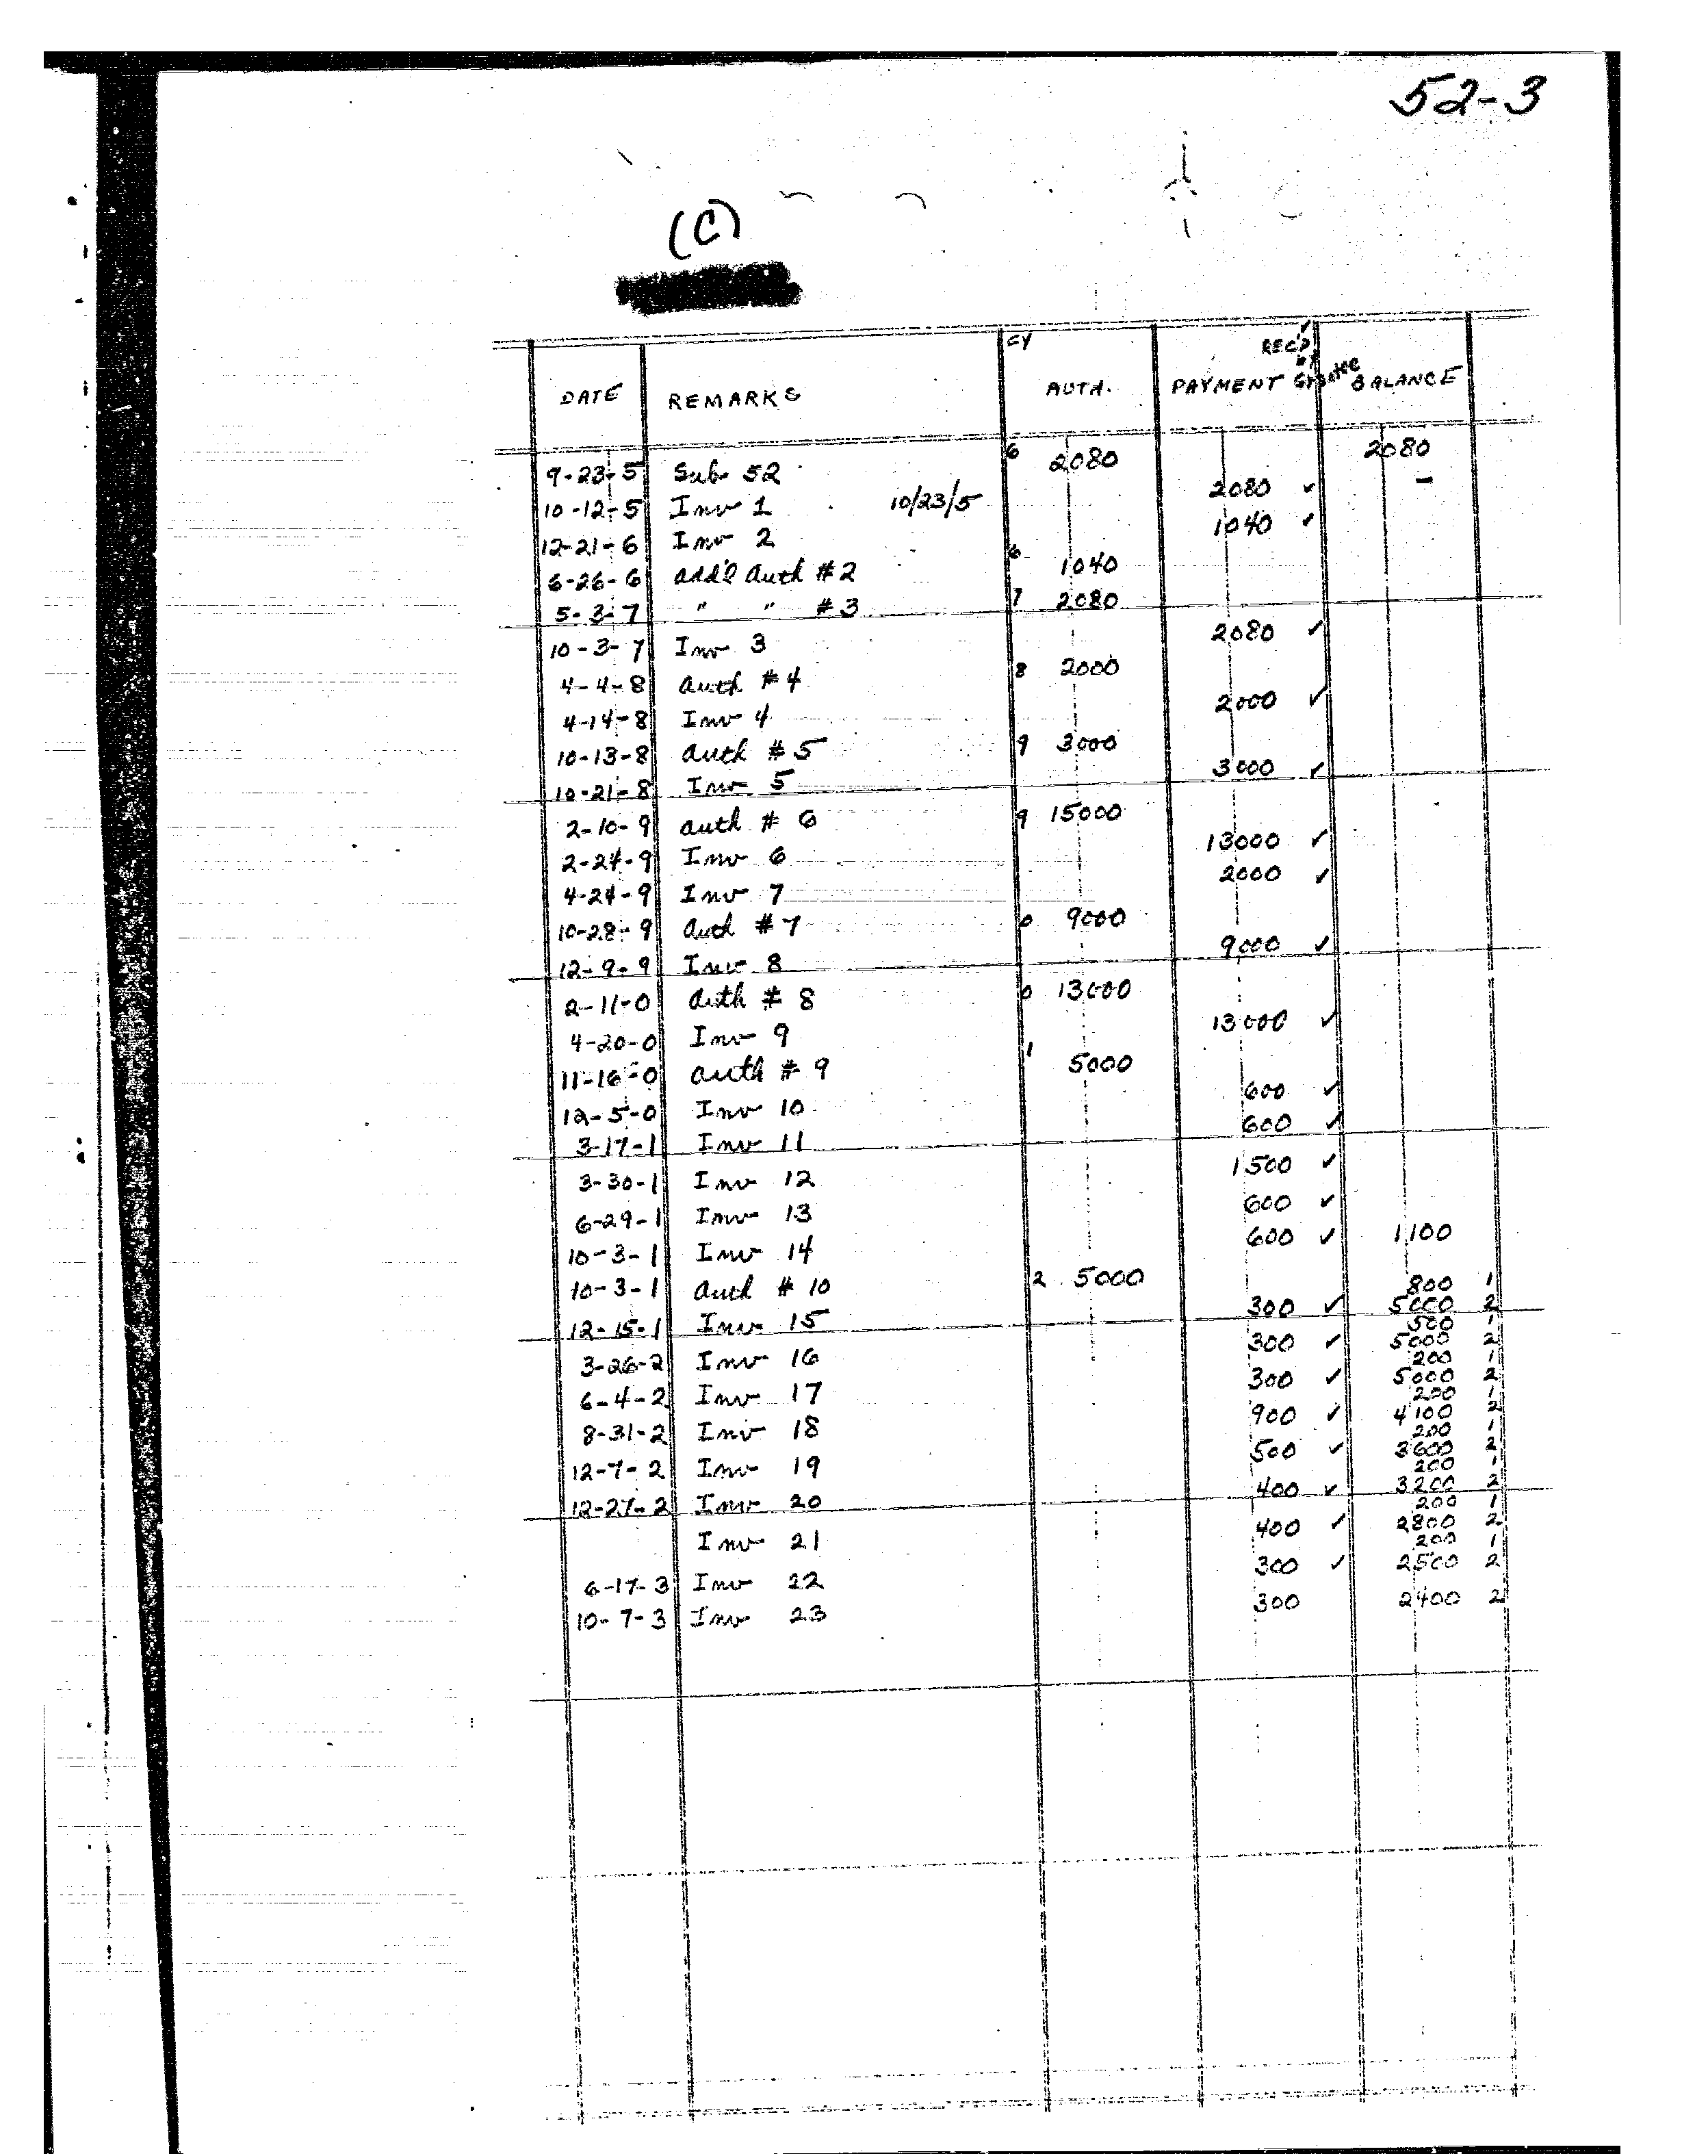 52-3
(C)
DATE REMARKS CY AUTH. PAYMENT REC'D BY Grantee BALANCE
9-23-5 Sub 52 6 2080 2080
10-12-5 Inv 1 10/23/5 2080 ✓ -
12-21-6 Inv 2 1040 ✓
6-26-6 add'l auth #2 6 1040
5-3-7 " " #3 7 2080
10-3-7 Inv 3 2080 ✓
4-4-8 auth #4 8 2000
4-14-8 Inv 4 2000 ✓
10-13-8 auth #5 9 3000
10-21-8 Inv 5 3000 ✓
2-10-9 auth # 6 9 15000
2-24-9 Inv 6 13000 ✓
4-24-9 Inv 7 2000 ✓
10-28-9 auth #7 0 9000
12-9-9 Inv 8 9000 ✓
2-11-0 auth # 8 0 13000
4-20-0 Inv 9 13000 ✓
11-16-0 auth # 9 1 5000
12-5-0 Inv 10 600 ✓
3-17-1 Inv 11 600 ✓
3-30-1 Inv 12 1500 ✓
6-29-1 Inv 13 600 ✓
10-3-1 Inv 14 600 ✓ 1100
10-3-1 auth # 10 2 5000
800 1
12-15-1 Inv 15 300 ✓ 5000 2
500 1
3-26-2 Inv 16 300 ✓ 5000 2
200 1
6-4-2 Inv 17 300 ✓ 5000 2
200 1
8-31-2 Inv 18 900 ✓ 4100 2
200 1
12-7-2 Inv 19 500 ✓ 3600 2
200 1
12-27-2 Inv 20 400 ✓ 3200 2
200 1
Inv 21 400 ✓ 2800 2
200 1
6-17-3 Inv 22 300 ✓ 2500 2
10-7-3 Inv 23 300 2400 2